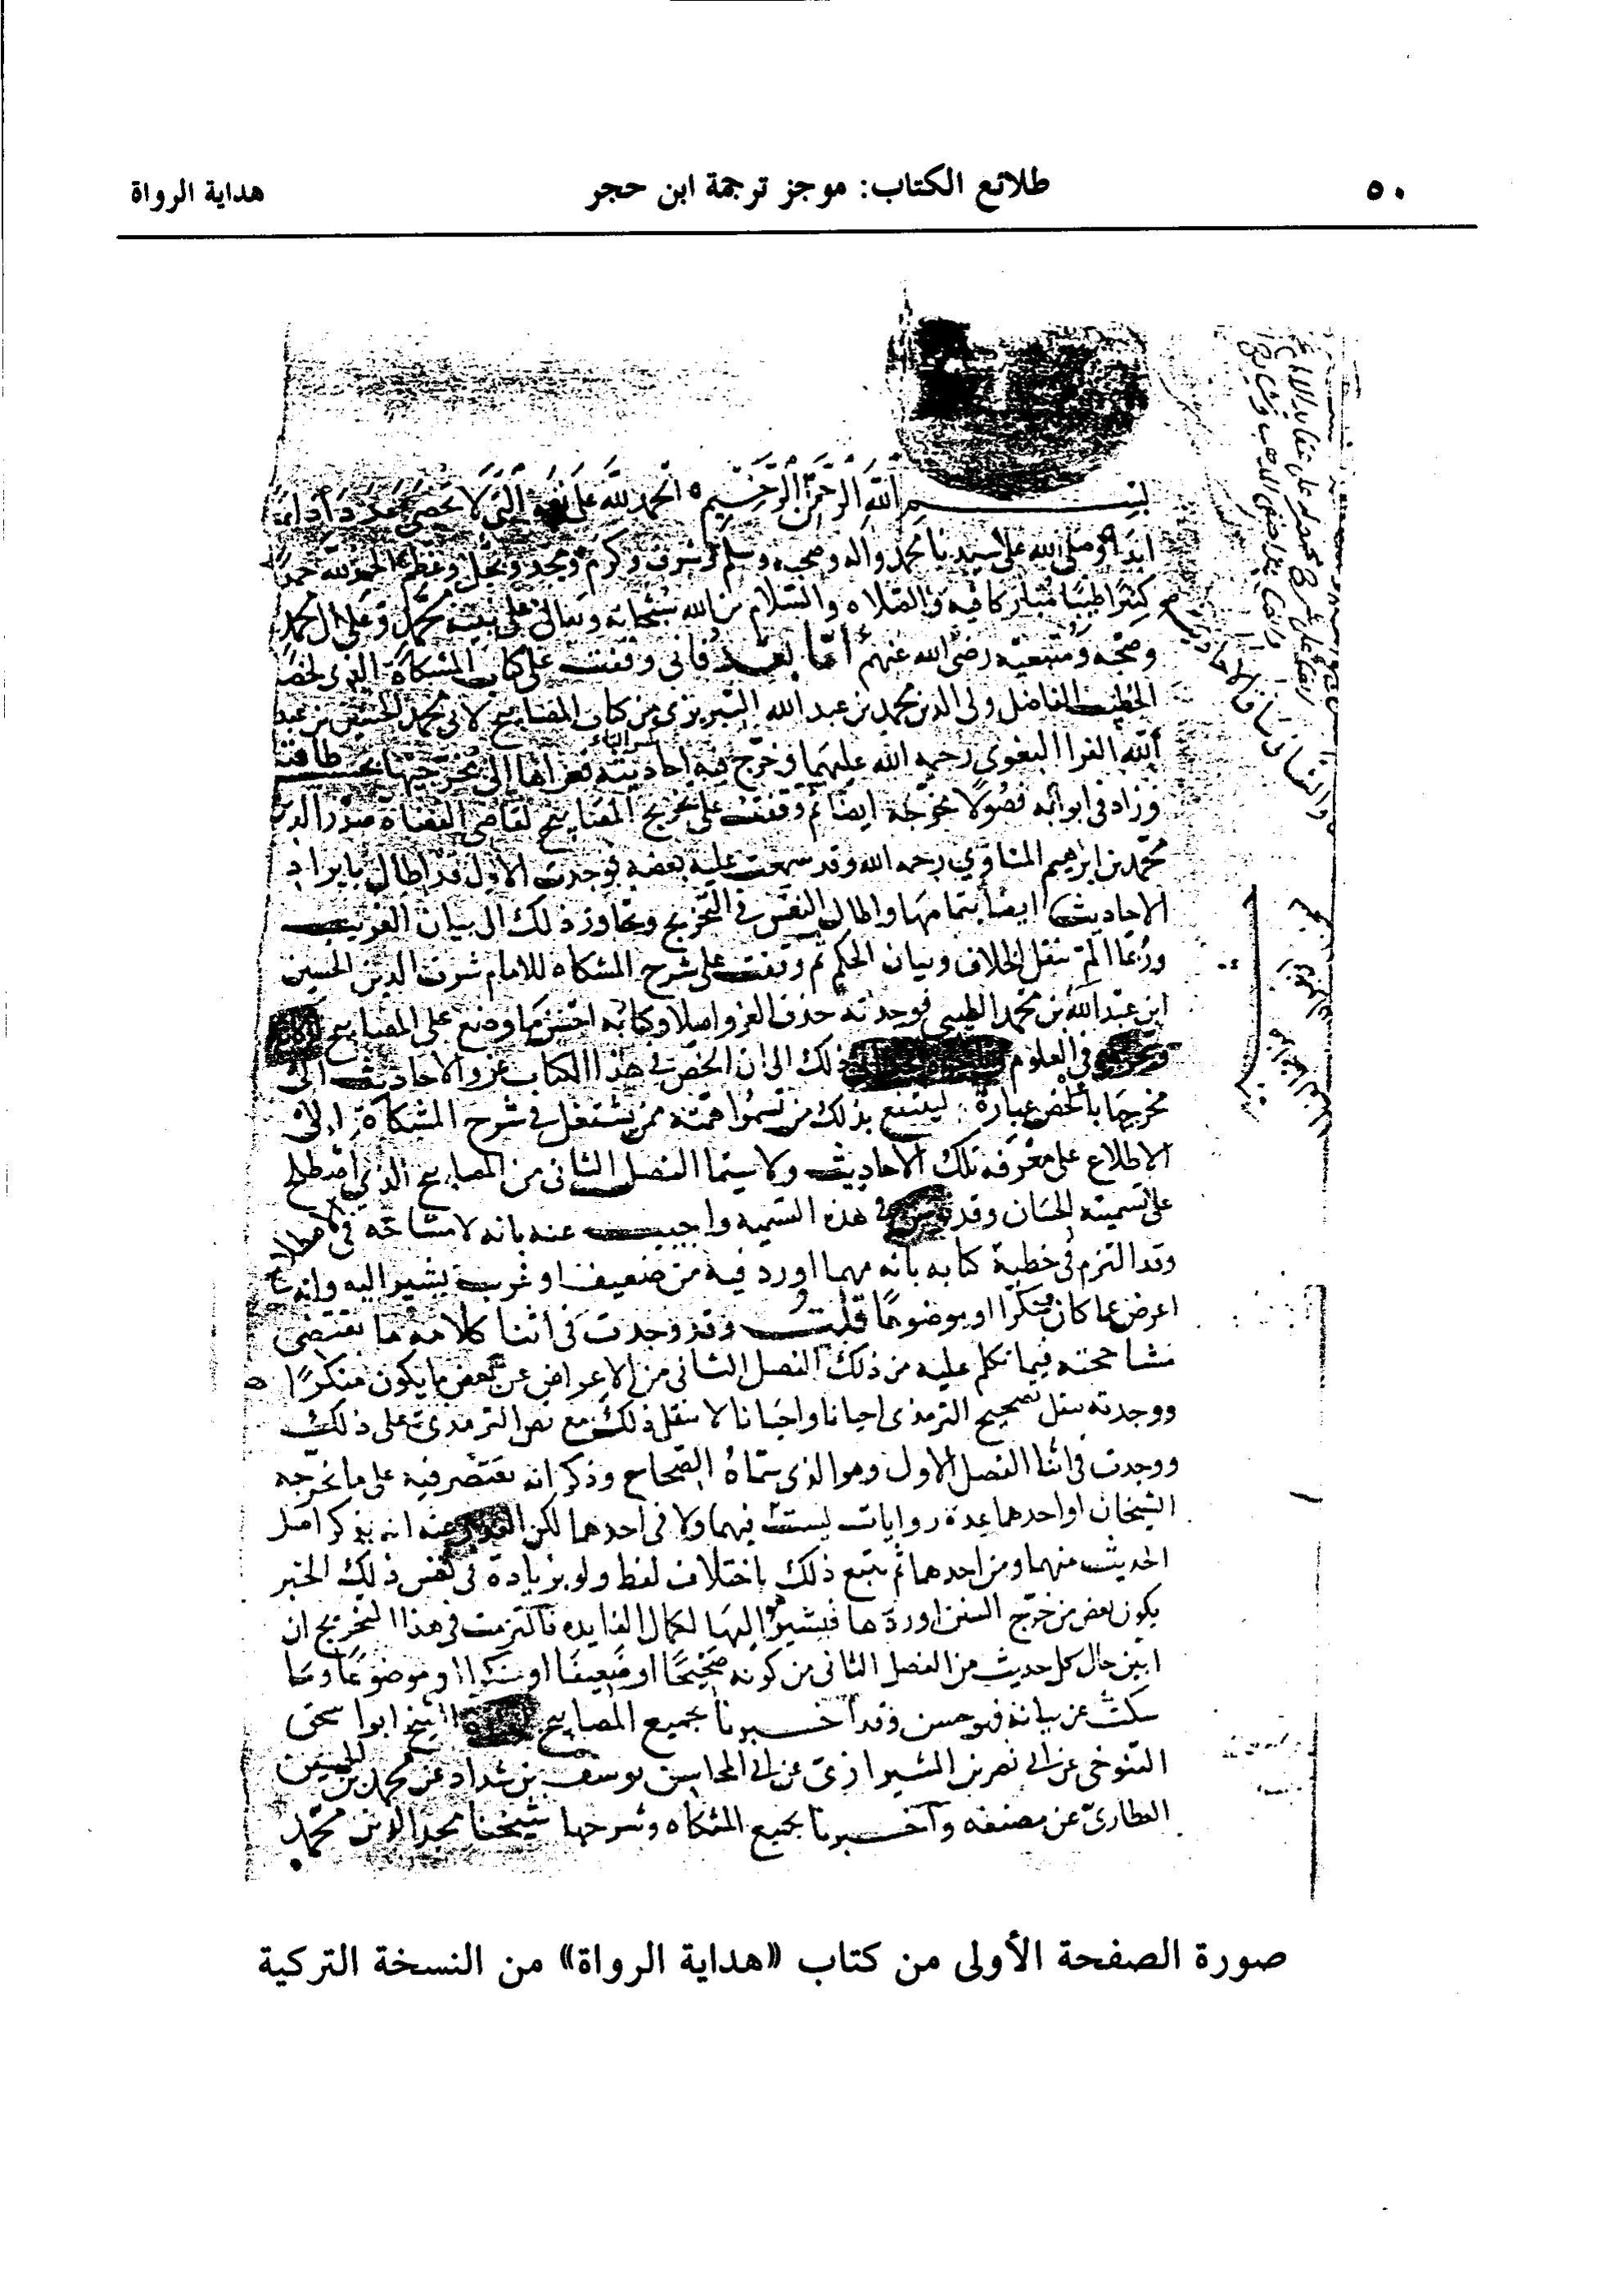 ٥٠ طلائع الكتاب: موجز ترجمة ابن حجر هداية الرواة
بسم الله الرحمن الرحيم الحمد لله على نعمه التي لا تحصى عددا دائما
ابدا وصلى الله على سيدنا محمد واله وصحبه وسلم وشرف وكرم ومجد وبجل وعظم الحمد لله حمدا
كثيرا طيبا مباركا فيه والصلاه والسلام من الله سبحانه وتعالى على نبيه محمد وعلى ال محمد
وصحبه ومتبعيه رضى الله عنهم أما بعد فانى وقفت على كتاب المشكاة الذى لخصه
الخطيب الفاضل ولى الدين محمد بن عبد الله التبريزى من كتاب المصابيح لابى محمد الحسين بن عبد
الله الفرا البغوى رحمة الله عليهما وخرج فيه احاديثه فعزاها الى مخرجيها بحسب طاقته
وزاد فى ابوابه فصولا مخرجة ايضا ثم وقفت على تخريج المصابيح لقاضى القضاة صدر الدين
محمد بن ابرهيم المناوي رحمه الله وقد سمعت عليه بعضه فوجدت الاول قد اطال بايراد
الاحاديث ايضا بتمامها واطال النفس فى التخريج وتجاوز ذلك الى بيان الغريب
وربما الم بنقل الخلاف وبيان الحكم ثم وقفت على شرح المشكاه للامام شرف الدين الحسين
ابن عبد الله بن محمد الطيبى فوجدته حذف العزو اصلا وكتابه احسن ما وضع على المصابيح
فى العلوم ذلك الى ان الخص فى هذا الكتاب عزو الاحاديث الى
مخرجها بالخص عبارة لينتفع بذلك من تسموا همته ممن يشتغل فى شرح المشكاة الى
الاطلاع على معرفه تلك الاحاديث ولا سيما الفصل الثانى من المصابيح الذي اصطلح
على تسميته الحسان وقد فى هذه التسميه واجيب عنه بانه لا مشاحة فى الاصطلاح
وقد التزم فى خطبة كتابه بانه مهما اورد فيه من ضعيف او غريب يشير اليه وانه
اعرض عما كان منكرا او موضوعا قلت وقد وجدت فى اثنا كلامه ما يقتضى
مشاححته فيما تكلم عليه من ذلك الفصل الثانى من الاعراض عن بعض ما يكون منكرا
ووجدته ينقل تصحيح الترمذى احيانا واحيانا لا ينقل ذلك مع نص الترمذى على ذلك
ووجدت فى اثنا الفصل الاول وهو الذى سماه الصحاح وذكر انه يقتصر فيه على ما يخرجه
الشيخان او احدهما عدة روايات ليست فيهما ولا فى احدهما لكن العذر عنه انه يذكر اصل
الحديث منهما او من احدهما ثم يتبع ذلك باختلاف لفظ ولو بزيادة فى نفس ذلك الخبر
يكون بعض من خرج السنن اوردها فيشير هو اليها لكمال الفايده فالتزمت فى هذا التخريج ان
ابين حال كل حديث من الفصل الثانى من كونه صحيحا او ضعيفا او منكرا او موضوعا وما
سكت عن بيانه فهو حسن وقد اخبرنا بجميع المصابيح الشيخ ابو اسحق
التنوخى عن ابى نصر بن الشيرازى عن ابى المحاسن يوسف بن شداد عن محمد بن الحسين
العطارى عن مصنفه واخبرنا بجميع المشكاه وشرحها شيخنا مجد الدين محمد
صورة الصفحة الأولى من كتاب «هداية الرواة» من النسخة التركية